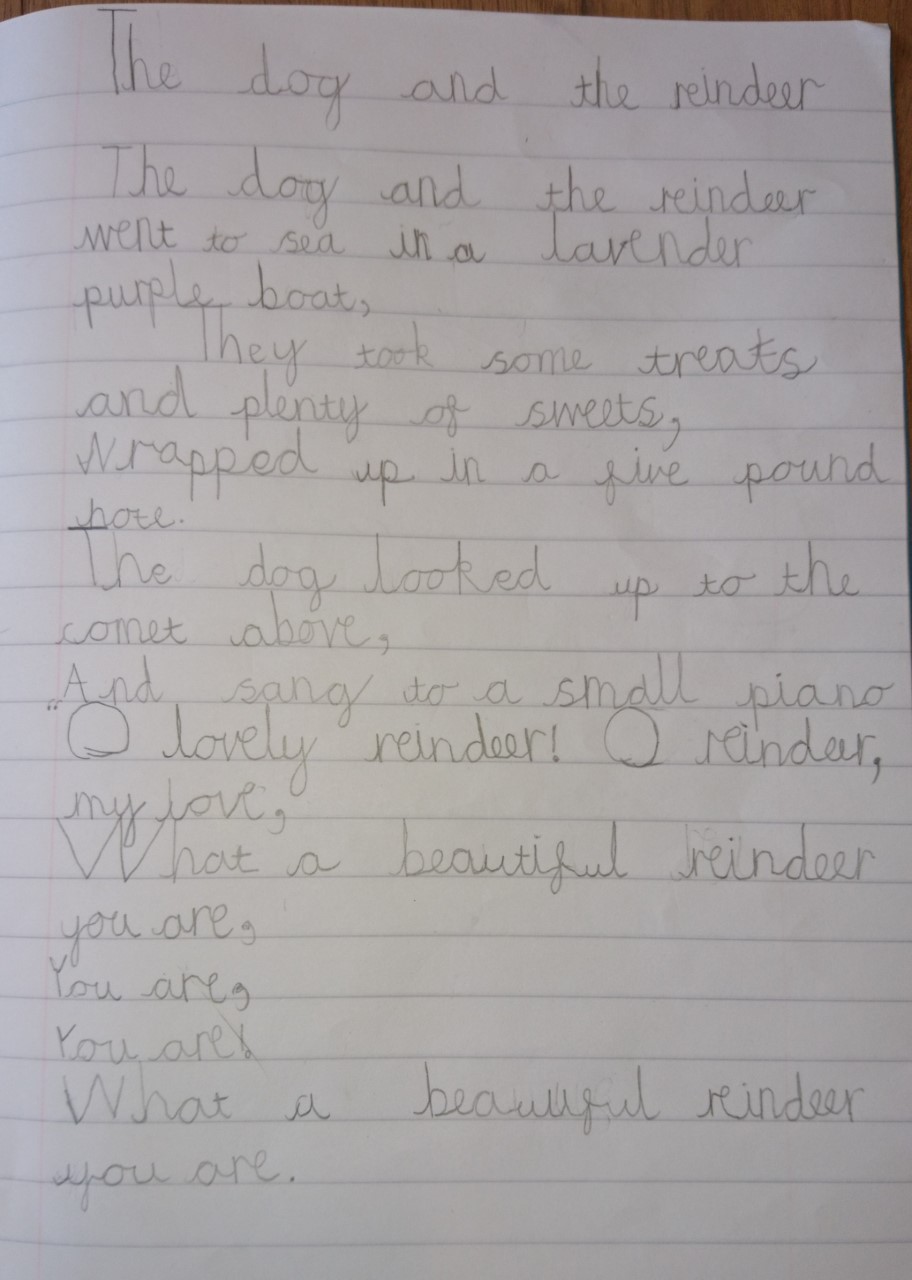 The dog and the reindeer
The dog and the reindeer
went to sea in a lavender
purple boat,
They took some treats
and plenty of sweets,
Wrapped up in a five pound
note.
The dog looked up to the
comet above,
And sang to a small piano
"O lovely reindeer! O reindeer,
my love,
What a beautiful reindeer
you are,
You are,
You are!
What a beautiful reindeer
you are.